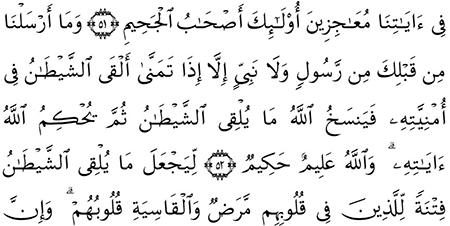 فِىٓ ءَايَـٰتِنَا مُعَـٰجِزِينَ أُو۟لَـٰٓئِكَ أَصْحَـٰبُ ٱلْجَحِيمِ ۝٥١ وَمَآ أَرْسَلْنَا
مِن قَبْلِكَ مِن رَّسُولٍ وَلَا نَبِىٍّ إِلَّآ إِذَا تَمَنَّىٰٓ أَلْقَى ٱلشَّيْطَـٰنُ فِىٓ
أُمْنِيَّتِهِۦ فَيَنسَخُ ٱللَّهُ مَا يُلْقِى ٱلشَّيْطَـٰنُ ثُمَّ يُحْكِمُ ٱللَّهُ
ءَايَـٰتِهِۦ ۗ وَٱللَّهُ عَلِيمٌ حَكِيمٌ ۝٥٢ لِّيَجْعَلَ مَا يُلْقِى ٱلشَّيْطَـٰنُ
فِتْنَةً لِّلَّذِينَ فِى قُلُوبِهِم مَّرَضٌ وَٱلْقَاسِيَةِ قُلُوبُهُمْ ۗ وَإِنَّ